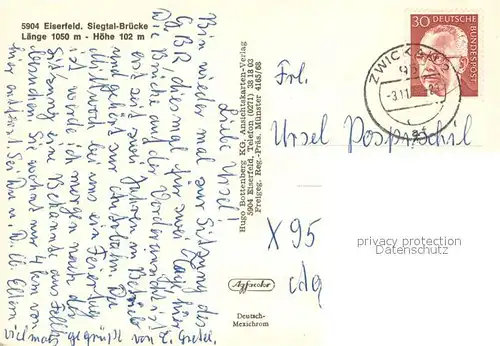 5904 Eiserfeld. Siegtal-Brücke
Länge 1050 m - Höhe 102 m
Liebe Ursel!
Bin wieder mal zur Sitzung des
GBR diesmal für zwei Tage hier.
Die Brücke auf der Vorderansicht ist
erst seit zwei Jahren in Betrieb
und gehört zur Autobahn. Da
Mittwoch bei uns ein Feiertag
ist, werd ich morgen nach der
Sitzung eine Bekannte aus
besuchen. Sie wohnt nur 4 km von
hier entfernt. Sei Du u. D. lb. Eltern
vielmals gegrüßt von E. Gretel.
Hugo Bottenberg KG, Ansichtskarten-Verlag
5904 Eiserfeld, Telefon (0271) 38 18 03
Freigeg. Reg.-Präs. Münster 4165/68
Agfacolor
Deutsch-
Mexichrom
30 DEUTSCHE
BUNDESPOST
Frl.
Ursel Pospraschil
X 95
privacy protection
Datenschutz